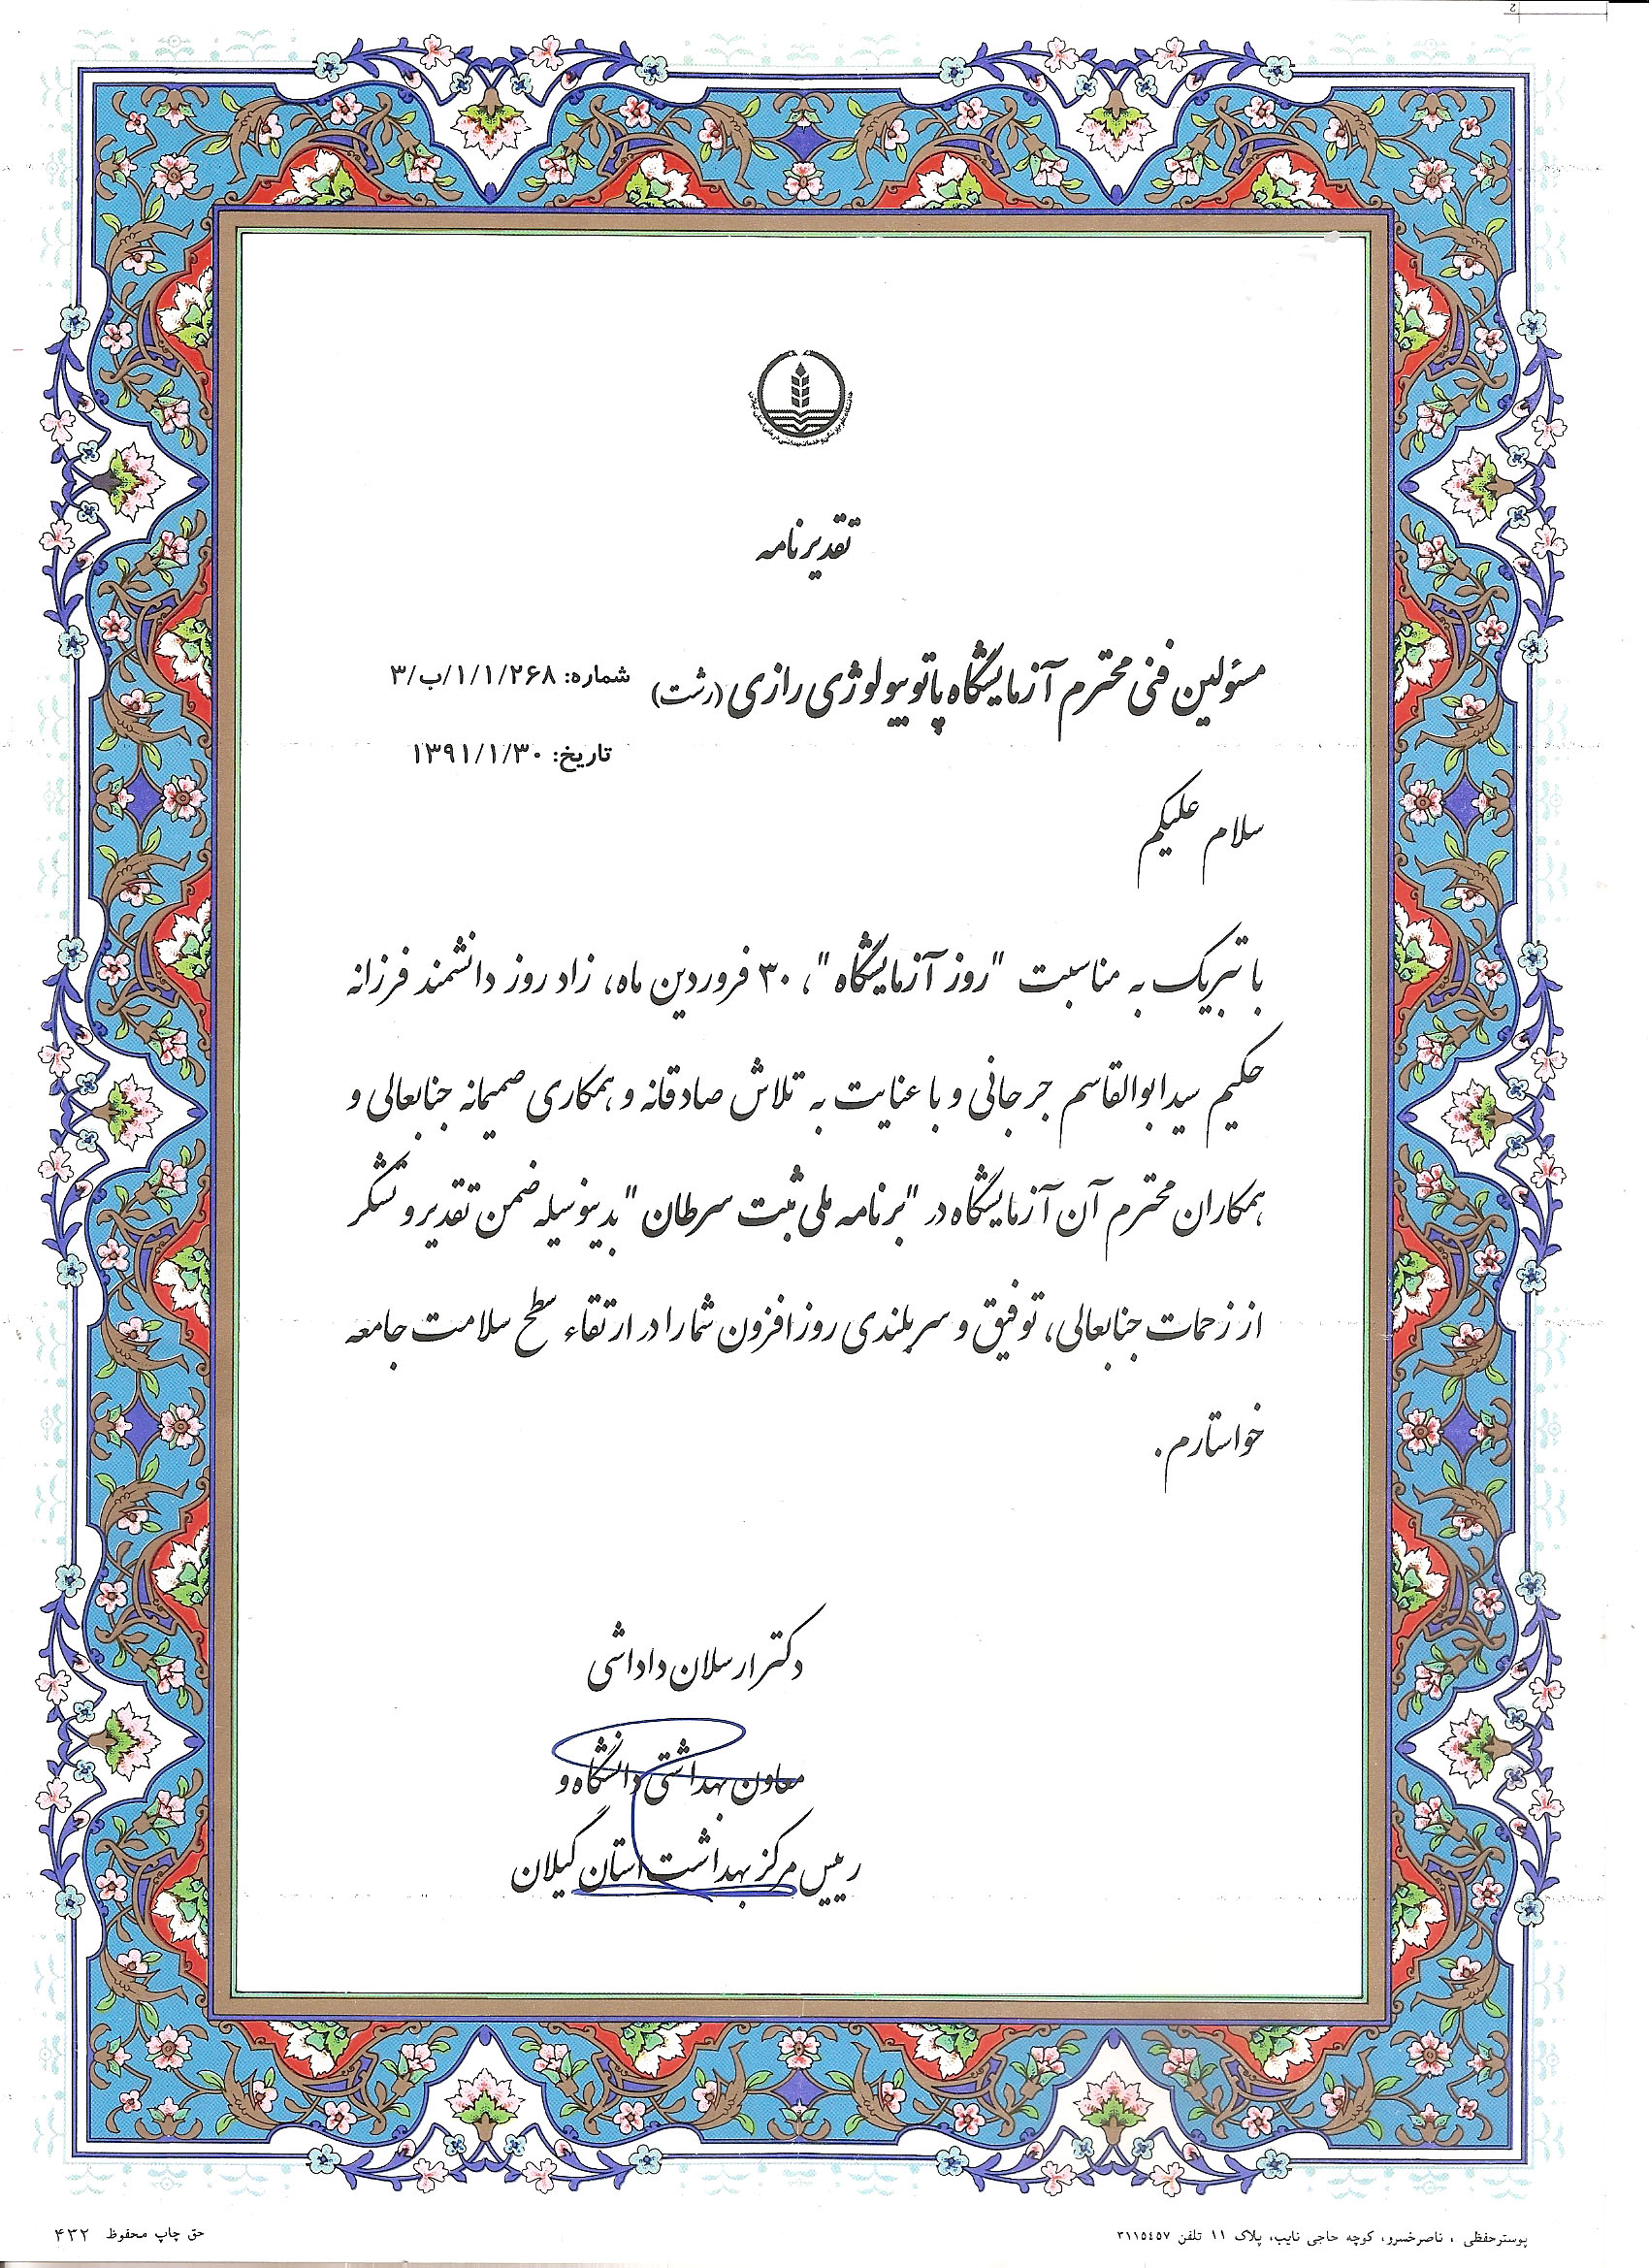 تقدیرنامه
مسئولین فنی محترم آزمایشگاه پاتوبیولوژی رازی (رشت)
شماره: ۳/ب/۱/۱/۲۶۸
تاریخ: ۱۳۹۱/۱/۳۰
سلام علیکم
با تبریک به مناسبت "روز آزمایشگاه"، ۳۰ فروردین ماه، زاد روز دانشمند فرزانه
حکیم سید ابوالقاسم جرجانی و با عنایت به تلاش صادقانه و همکاری صمیمانه جنابعالی و
همکاران محترم آن آزمایشگاه در "برنامه ملی ثبت سرطان" بدینوسیله ضمن تقدیر و تشکر
از زحمات جنابعالی، توفیق و سربلندی روزافزون شما را در ارتقاء سطح سلامت جامعه
خواستارم.
دکتر ارسلان داداشی
معاون بهداشتی دانشگاه و
رییس مرکز بهداشت استان گیلان
پوستر حفظی ، ناصرخسرو، کوچه حاجی نایب، پلاک ۱۱ تلفن ۳۱۱۵۴۵۷
حق چاپ محفوظ ۴۳۲